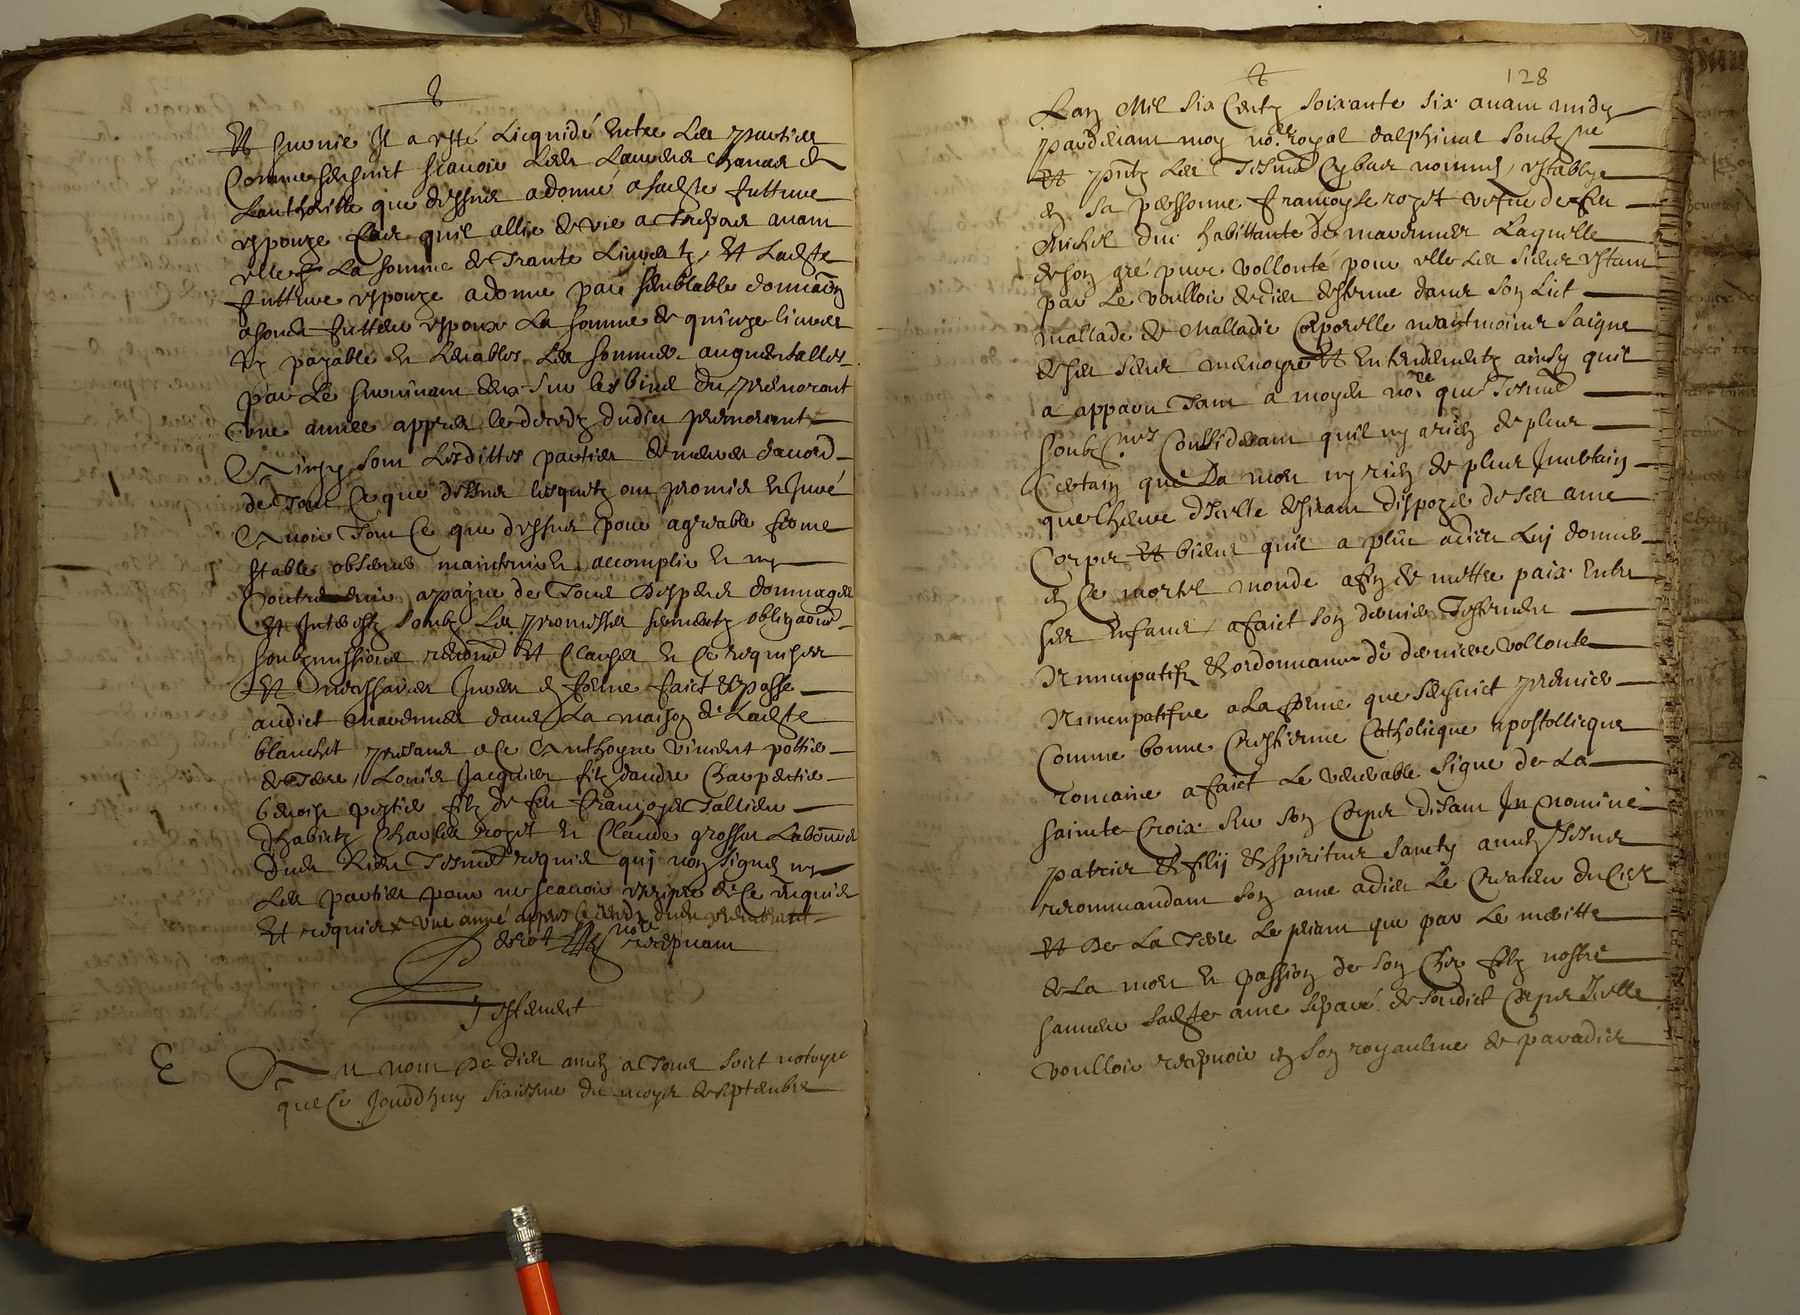 Et survie Il a esté Licquidé Entre Les parties
Comme sensuict scauoir Led
que dessus a donné a ladte future
espouze Cas quil allie de vie a Trespas auant
elle La somme de Trante Liures Et Ladte
future espouze a donné par semblable donnaon
asondt futteur espoux La somme de quinze liures
payable Les sommes augmentalles
par Le suruiuant deux sur les biens du premorant
une annee appres le deceds dudict premorant
Ainsy sont Lesdittes parties demeures dacord
de Tout Ce que dessus lesquels ont promis et Juré
Auoir Tout Ce que dessus pour agreable ferme
stable obseruer maintenir et accomplir et ny
Contreuenir a payne de Tous Despens dommages
Et Interests soubz Les promesses sermentz obligaons
soubzmissions renonc Et Clauses a Ce requises
Et necessaires Jurer en forme faict et passe
audict dans La maison de Ladte
blanchet presans a Ce Anthoyne vincent pottier
de Terre Louis Jacquier filz dandre Charpentier
benoist filz de feu françoys
dhabietz Charles rozet et Claude grossat Laboureur
dudt Lieu Tesmoingz requis quy non signez ny
Les parties pour ne scauoir escripre de Ce enquis
Et requis une année appres le deceds dudt premorant
nore recepuant
Testament
Au nom De dieu amen a Tous soict notoyre
que Ce Jourdhuy sixiesme du moys de septembre
128
Lan Mil six Centz soixante six auant midy
pardeuant moy nore royal dalphinal soubz né
Et pntz Les Tesmoingz Cybas nommes establye
en sa personne françoyse rozet vefue de feu
Michel habittante de Laquelle
de son gré pure vollonté pour elle Les siens estant
par Le voulloir de dieu detenue dans son Lict
mallade de Malladie Corporelle neantmoings saigne
de ses sens memoyre Et Entendementz ainsy quil
a apparu Tant a moydt nore que Tesmoingz
soubz nés Considerant quil ny a rien de plus
Certain que La mort ny rien de plus Incertain
que Lheure dicelle desirant dispozer de ses ame
Corps Et biens quil a pleu a dieu Luy donner
en Ce mortel monde afin de mettre paix Entre
ses Enfans a faict son dernier Testament
Nuncupatif Et ordonnance de derniere vollonte
Nuncupatifue a La forme que sensuict premier
Comme bonne Crestienne Catholicque apostollicque
romaine a faict Le venerable signe de La
sainte Croix sur son Corps disant In nomine
patris et filij et spiritus sancty amen
recommandant son ame a dieu Le Createur du Ciel
Et De La Terre Le priant que par Le meritte
de La mort et passion de son Cher filz nostre
sauueur Ladte ame separé de sondict Corps Icelle
voulloir recepuoir en son royaulme de paradis